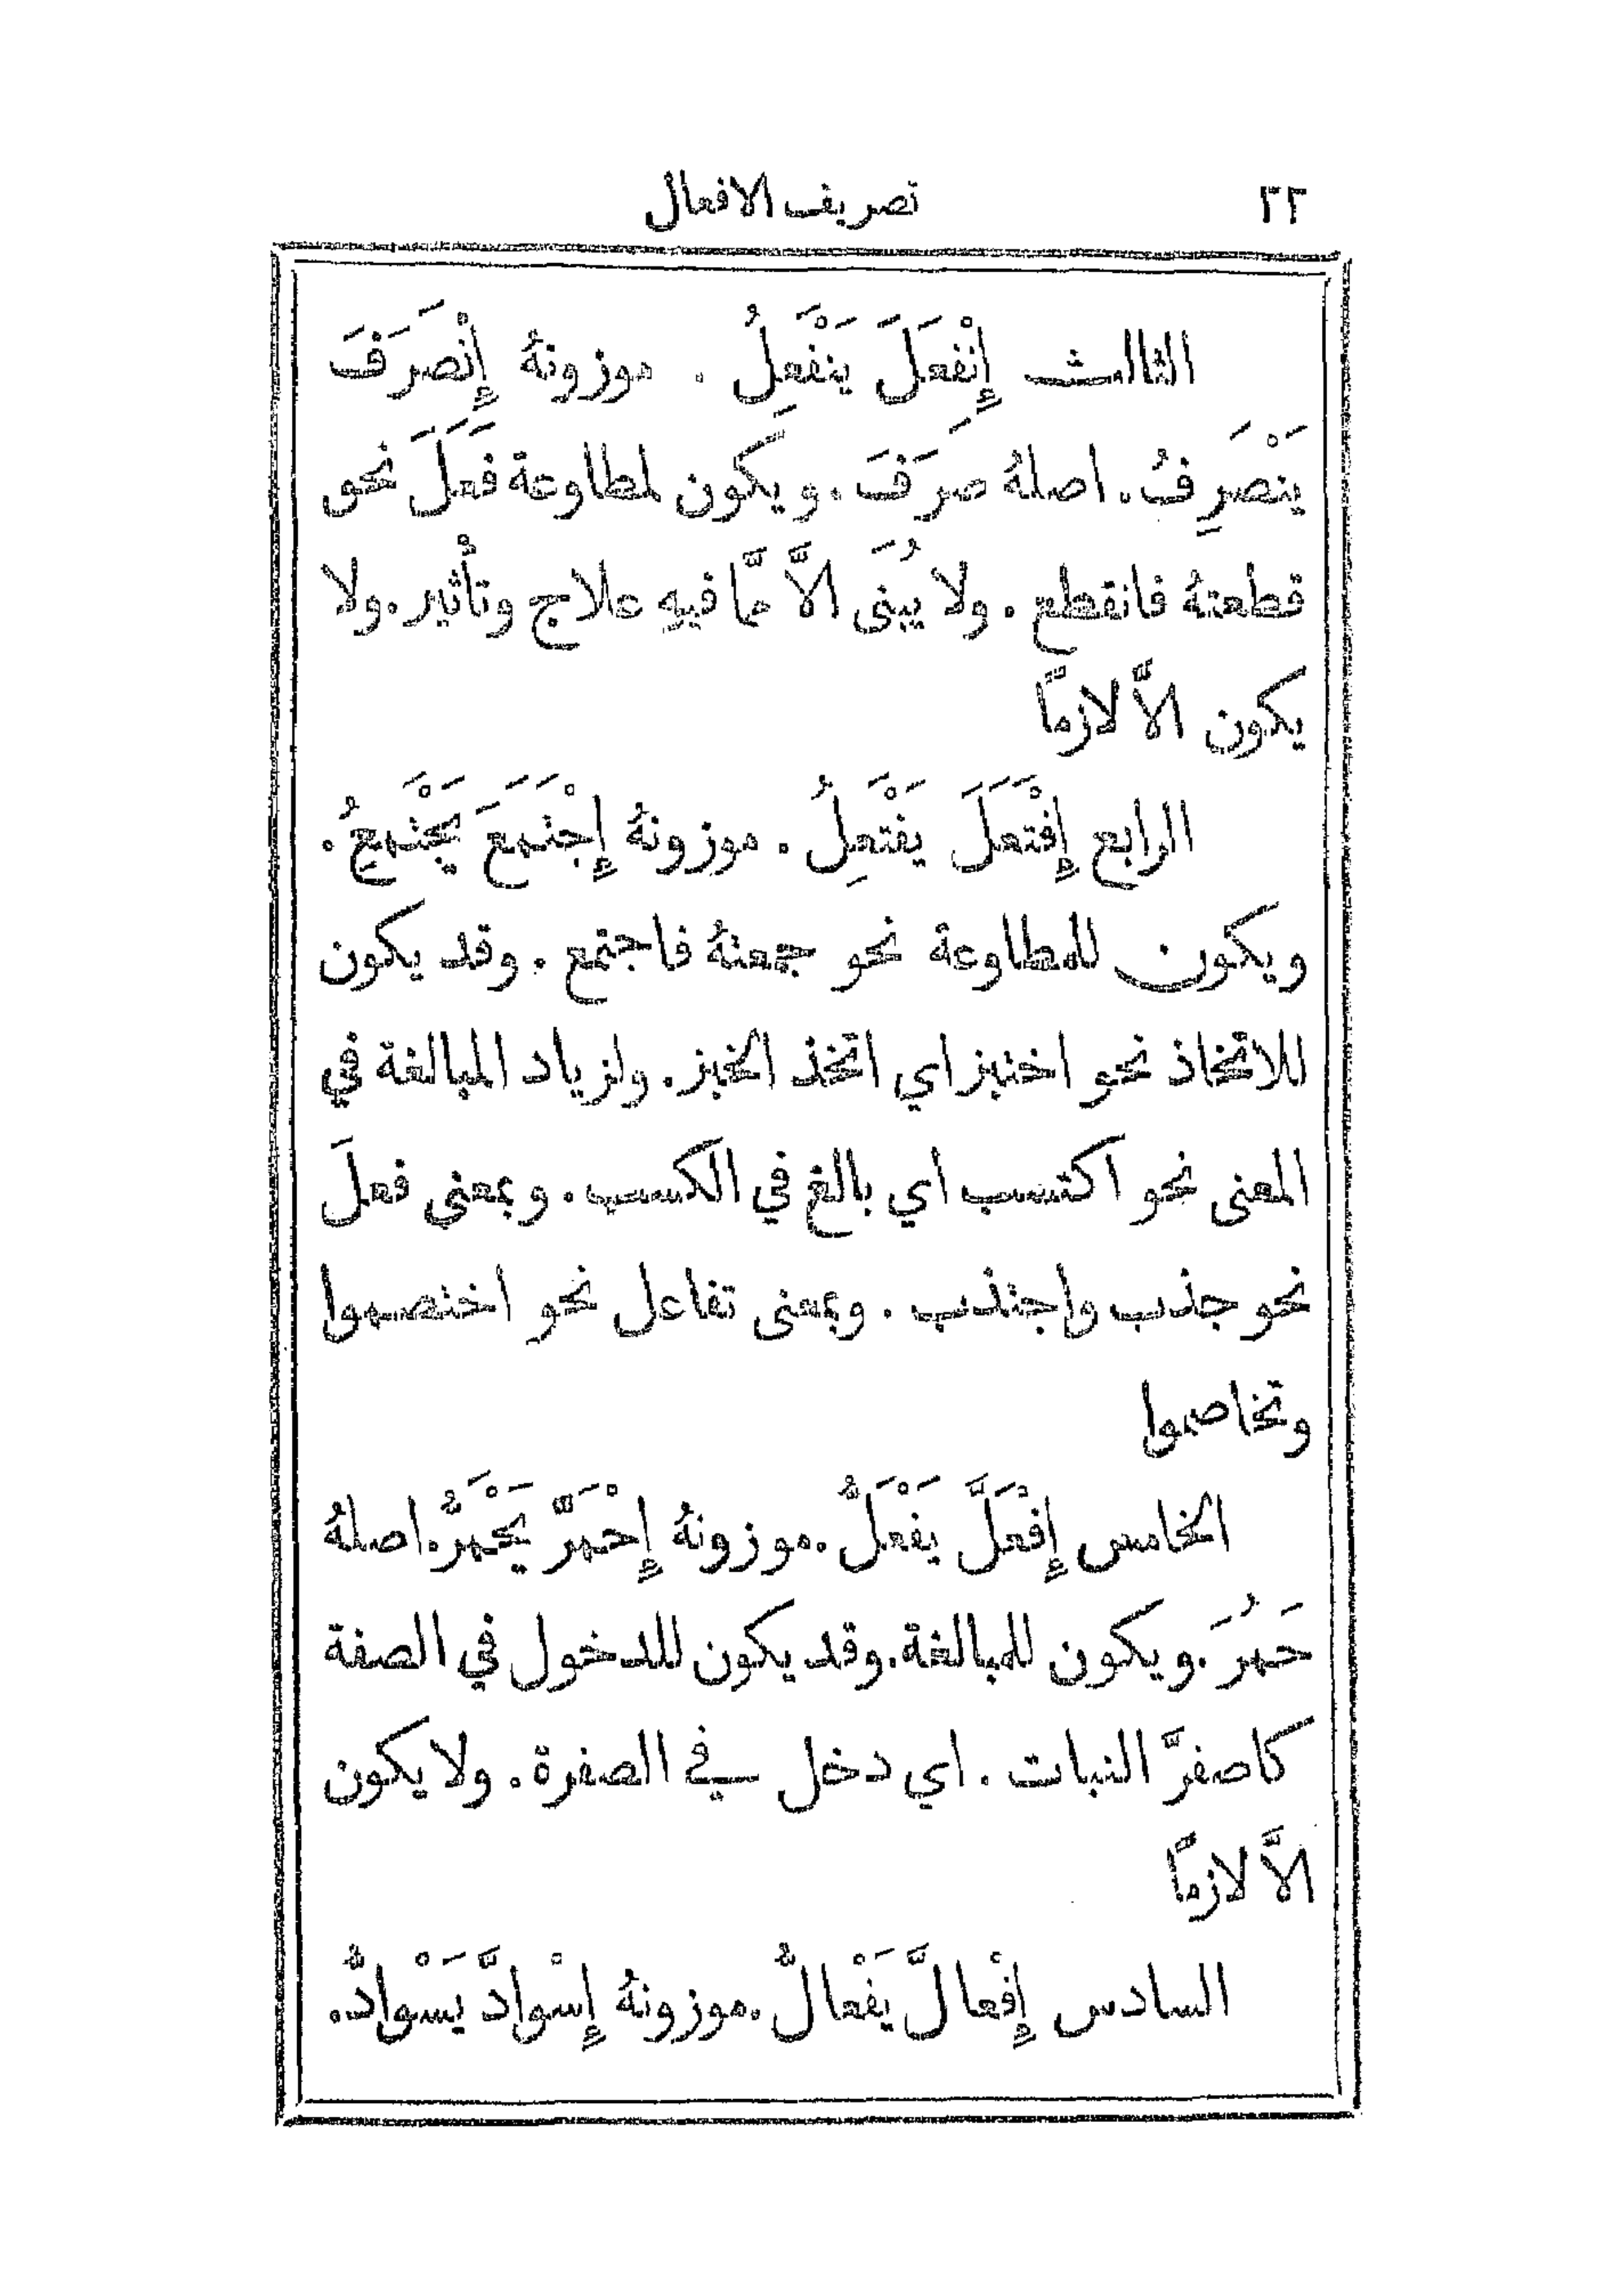 ٢٢ تصريف الافعال
الثالث إِنْفَعَلَ يَنْفَعِلُ . موزونهُ إِنْصَرَفَ
يَنْصَرِفُ. اصلهُ صَرَفَ. ويكون لمطاوعة فَعَلَ نحو
قطعتهُ فانقطع . ولا يُبنَى الَّا ممَّا فيهِ علاج وتأْثير. ولا
يكون الَّا لازمًا
الرابع إِفْتَعَلَ يَفْتَعِلُ . موزونهُ إِجْتَمَعَ يَجْتَمِعُ .
ويكون للمطاوعة نحو جمعتهُ فاجتمع . وقد يكون
للاتخاذ نحو اختبز اي اتخذ الخبز. ولزياد المبالغة في
المعنى نحو اكتسب اي بالغ في الكسب . وبمعنى فعلَ
نحو جذب واجتذب . وبمعنى تفاعل نحو اختصموا
وتخاصموا
الخامس إِفْعَلَّ يَفْعَلُّ . موزونهُ إِحْمَرَّ يَحْمَرُّ. اصلهُ
حَمُرَ. ويكون للمبالغة. وقد يكون للدخول في الصفة
كاصفرَّ النبات . اي دخل في الصفرة . ولا يكون
الَّا لازمًا
السادس إِفْعالَّ يَفْعالُّ. موزونهُ إِسْوادَّ يَسْوادُّ.